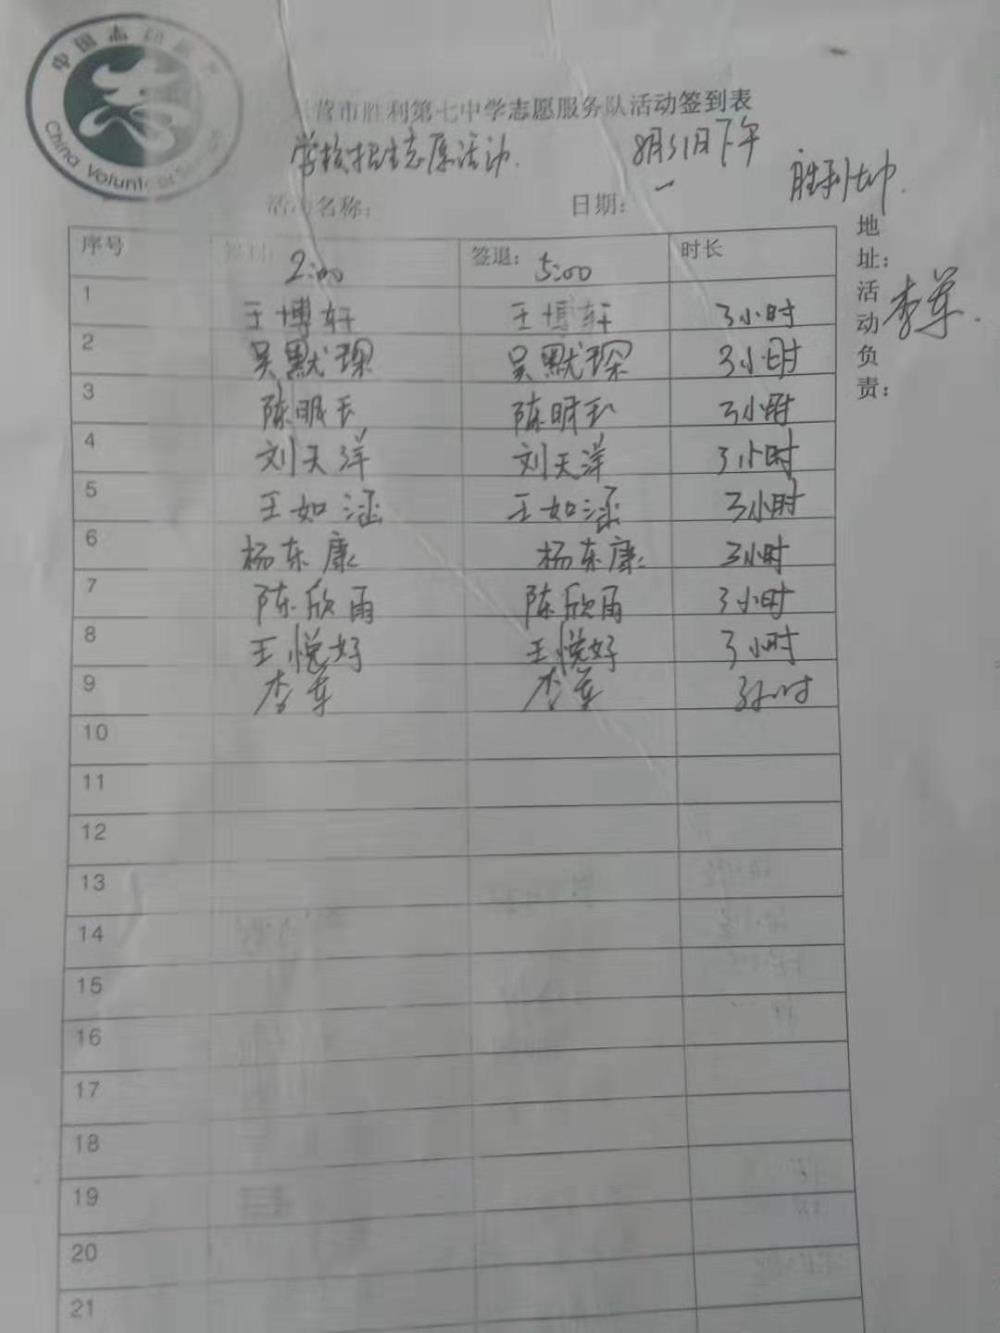 中国志愿
China Volunteer
营市胜利第七中学志愿服务队活动签到表
学校招生志愿活动
8月31日下午
胜利七中
活动名称：
日期：
地址：
活动负责：
李军
序号 签到： 2:00 签退： 5:00 时长
1 王博轩 王博轩 3小时
2 吴默琛 吴默琛 3小时
3 陈明玉 陈明玉 3小时
4 刘天洋 刘天洋 3小时
5 王如涵 王如涵 3小时
6 杨东康 杨东康 3小时
7 陈欣雨 陈欣雨 3小时
8 王悦好 王悦好 3小时
9 李军 李军 3小时
10
11
12
13
14
15
16
17
18
19
20
21